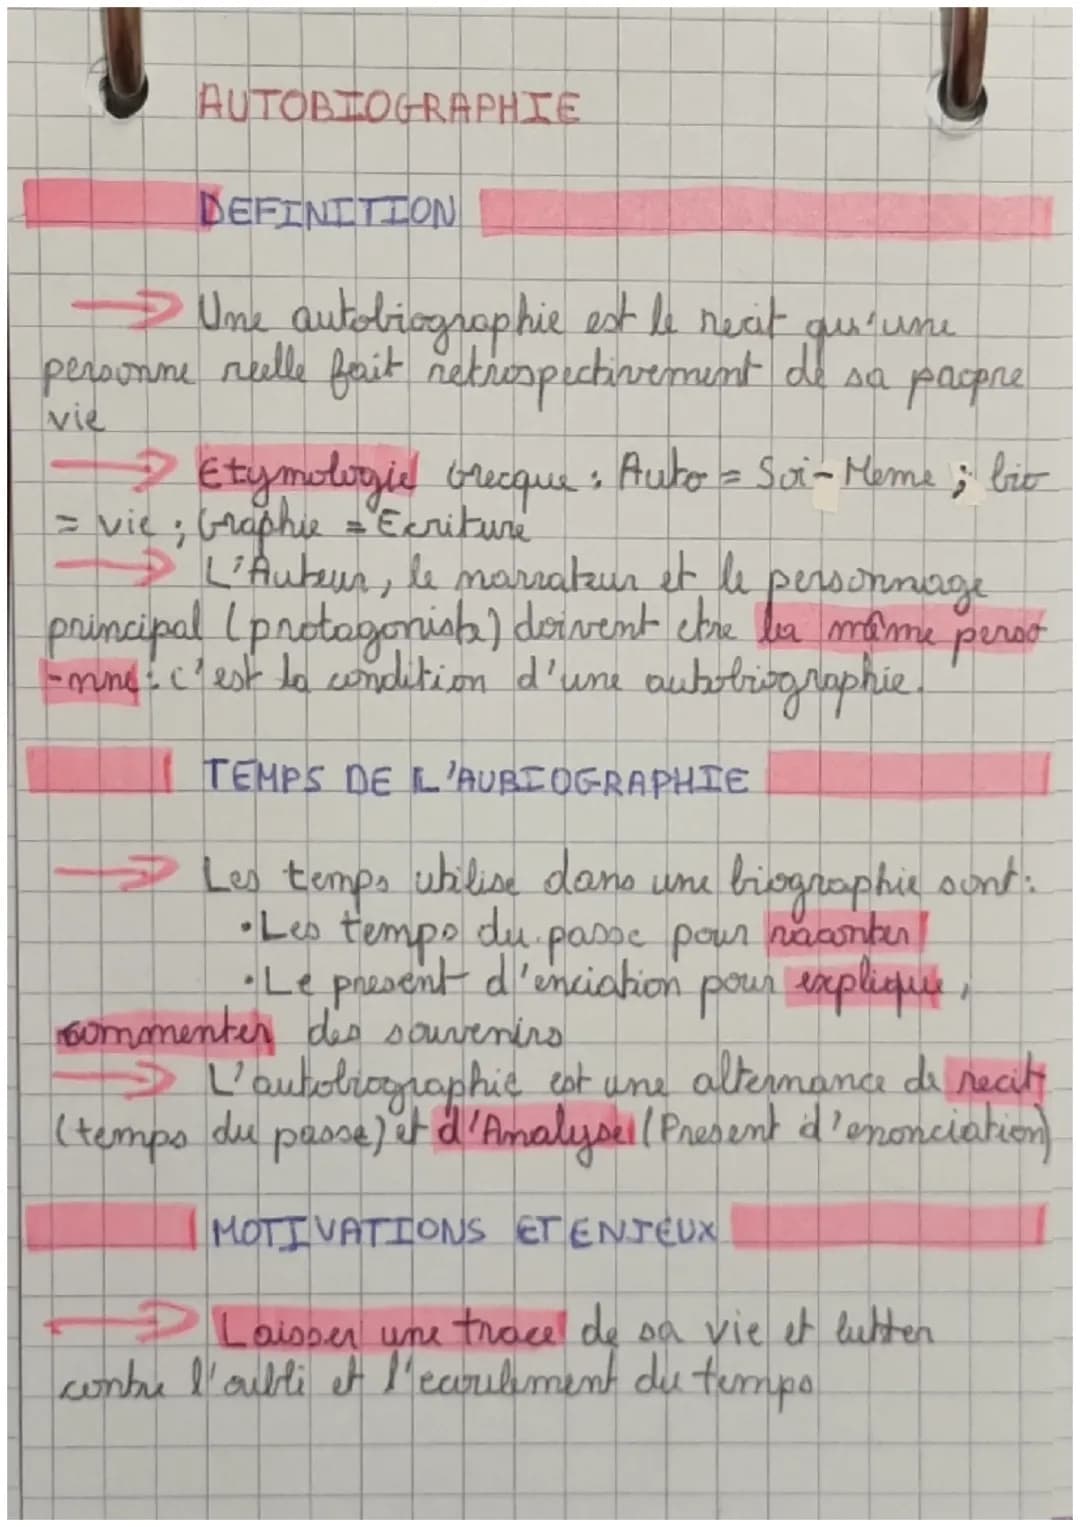 AUTOBIOGRAPHIE
DEFINITION
→ Une autobiographie est le recit qu'une
personne reelle fait retrospectivement de sa propre
vie
→ Etymologie Grecque : Auto = Soi-Meme ; bio
= vie ; Graphie = Ecriture
→ L'Auteur, le narrateur et le personnage
principal (protagoniste) doivent etre la même perso
-nne : c'est la condition d'une autobiographie.
TEMPS DE L'AUBIOGRAPHIE
→ Les temps utilise dans une biographie sont :
•Les temps du passe pour raconter
•Le present d'enciation pour explique,
commenter des souvenirs
→ L'autobiographie est une alternance de recit
(temps du passe) et d'Analyse (Present d'enonciation)
MOTIVATIONS ET ENJEUX
→ Laisser une trace de sa vie et lutter
contre l'oubli et l'ecoulement du temps